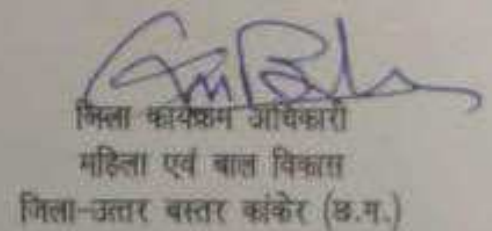 जिला कार्यक्रम अधिकारी
महिला एवं बाल विकास
जिला-उत्तर बस्तर कांकेर (छ.ग.)